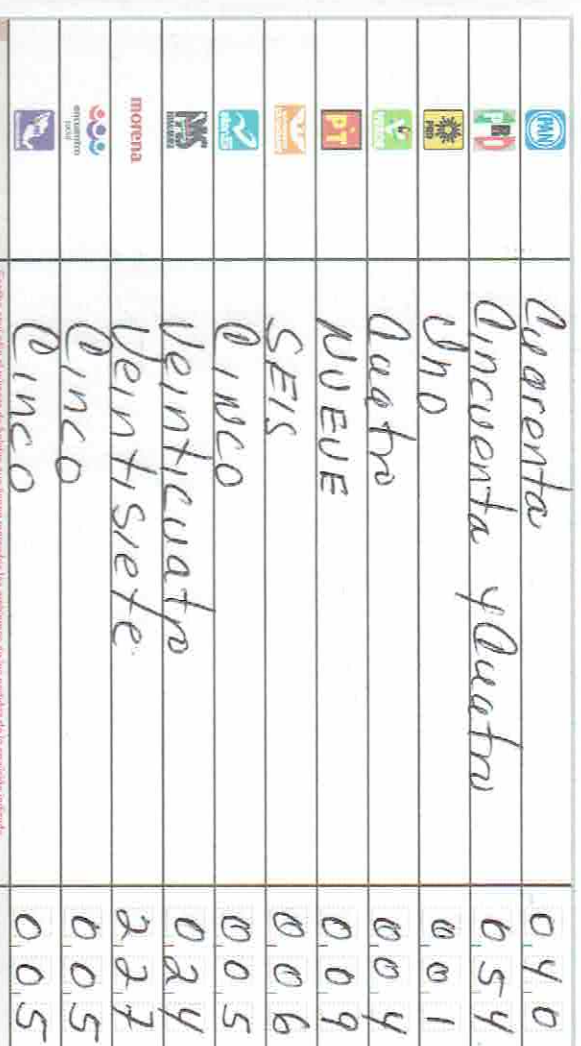 PAN Cuarenta 040
PRI Cincuenta y Cuatro 054
PRD Uno 001
VERDE Cuatro 004
PT NUEVE 009
SEIS 006
CINCO 005
Veinticuatro 024
morena Veintisiete 227
encuentro social Cinco 005
Cinco 005